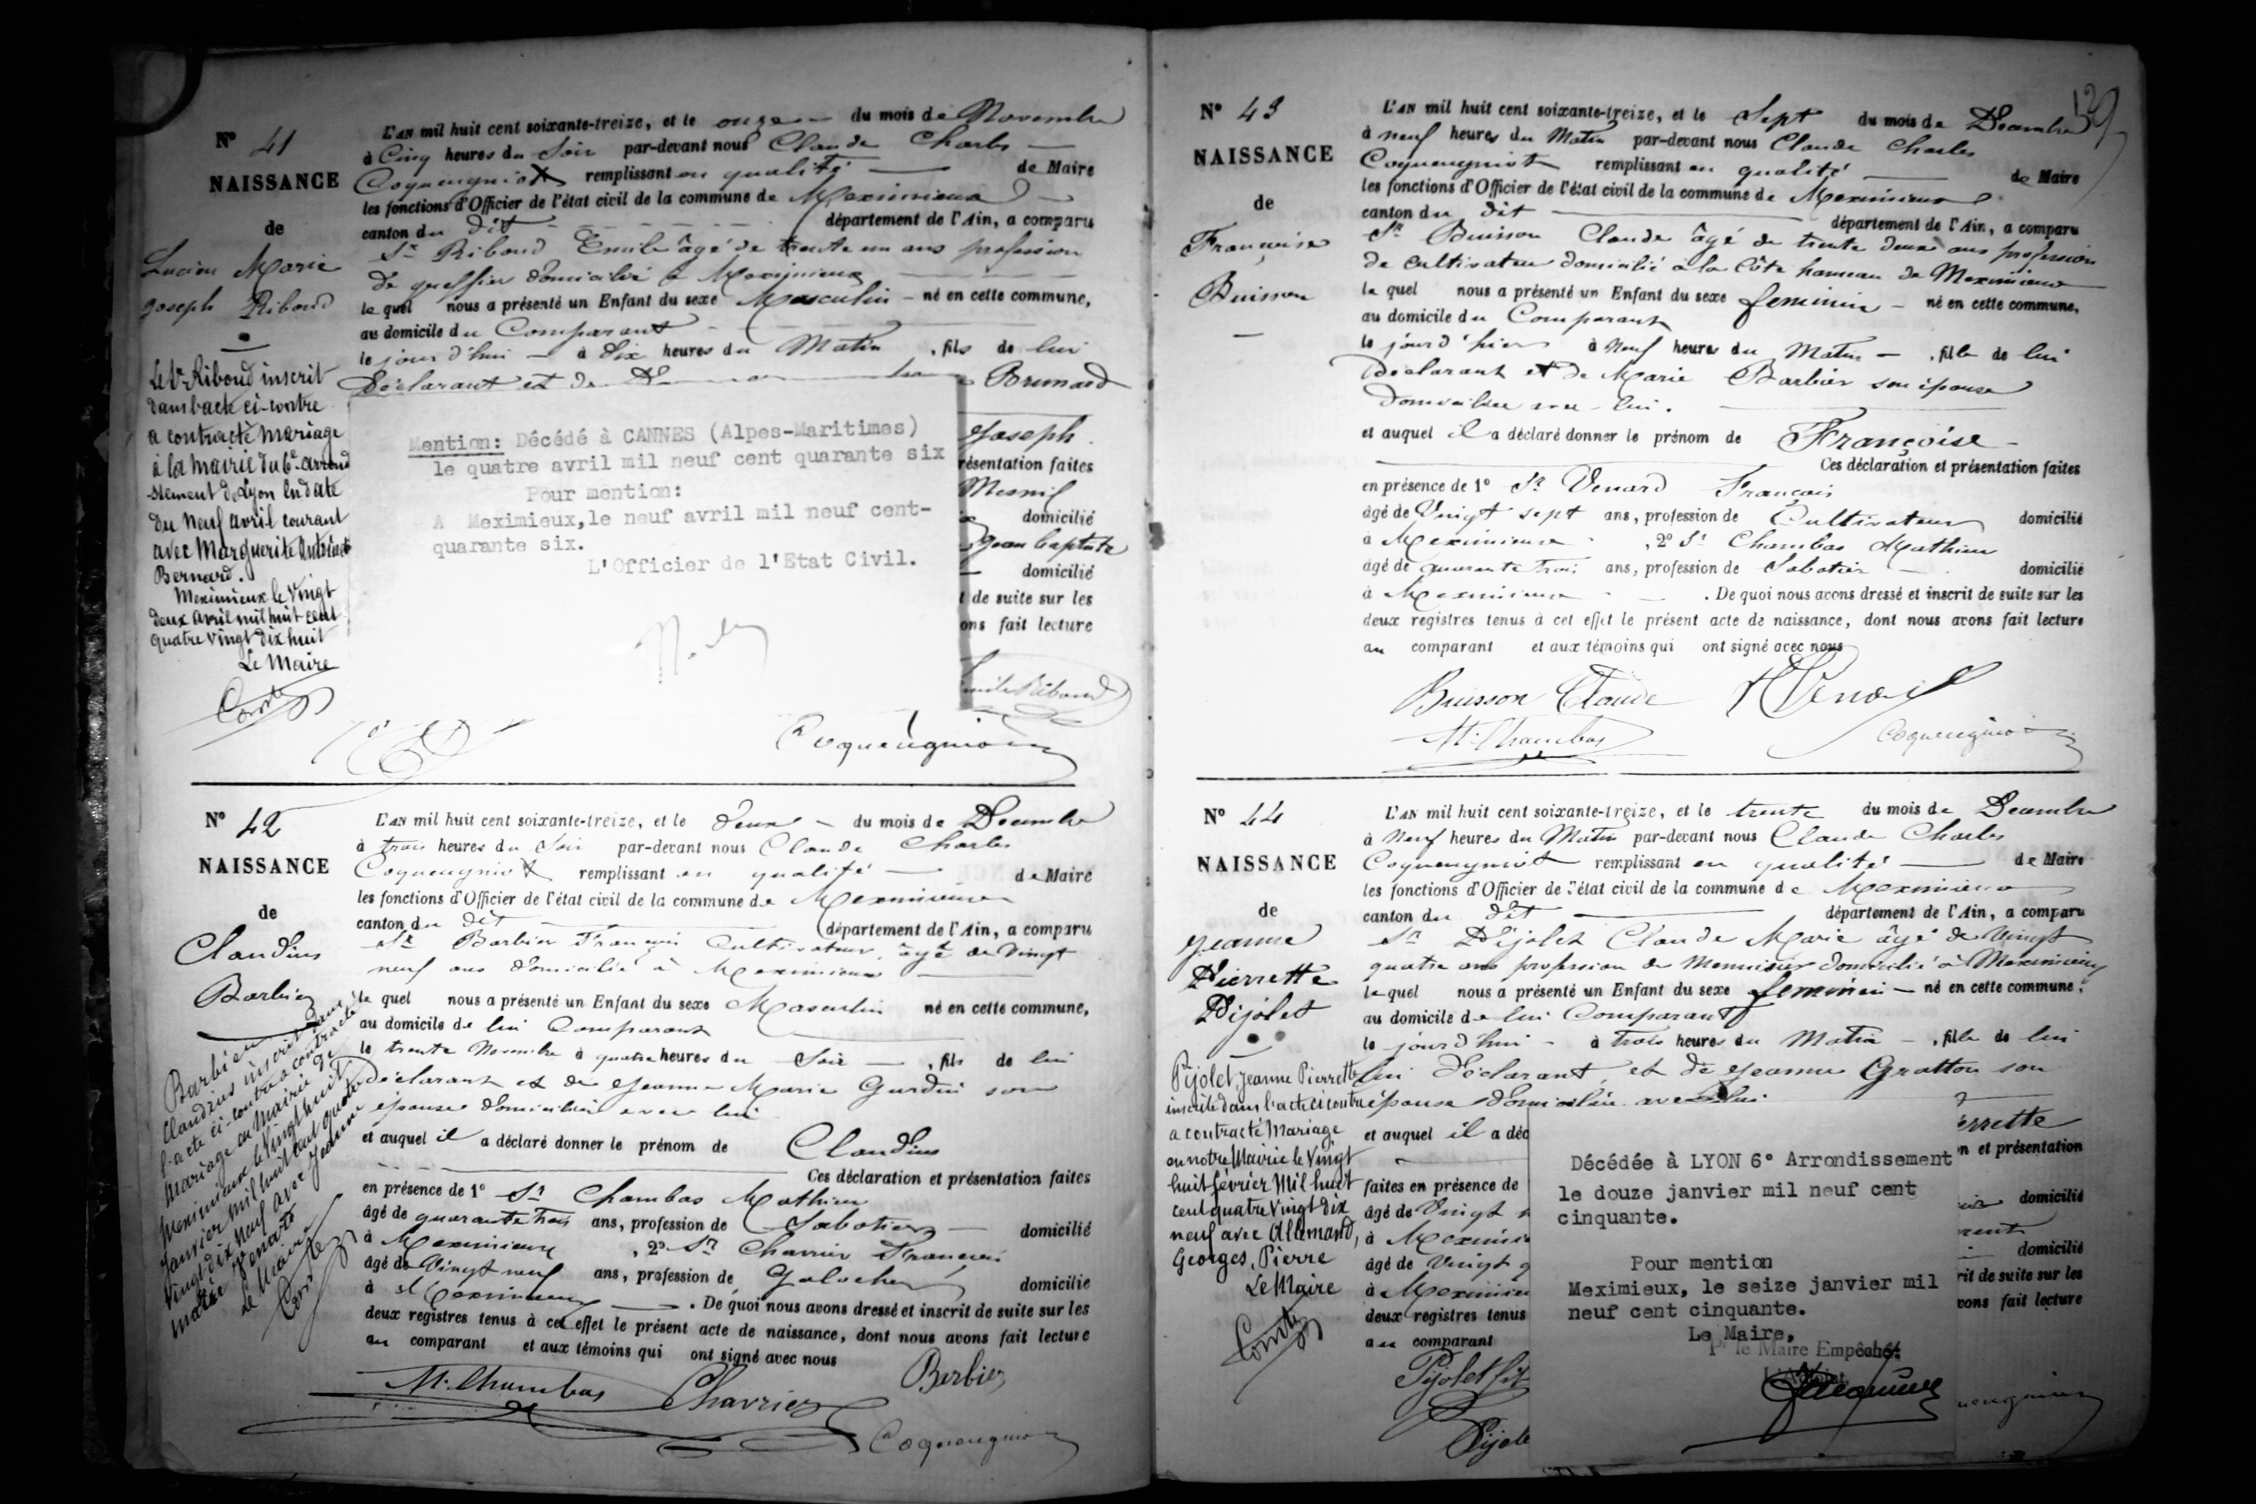 Nº 41
NAISSANCE
de
Lucien Marie
Joseph Riboud
L'AN mil huit cent soixante-treize, et le onze du mois de Novembre
à Cinq heures du Soir par-devant nous Claude Charles
Coqueugniot remplissant en qualité de Maire
les fonctions d'Officier de l'état civil de la commune de Meximieux
canton du dit département de l'Ain, a comparu
Sr Riboud Emile âgé de trente un ans profession
de greffier domicilié à Meximieux
le quel nous a présenté un Enfant du sexe Masculin né en cette commune,
au domicile du Comparant
le jourd'hui à dix heures du Matin , fils de lui
Déclarant et de Brunard
Joseph
résentation faites
Mesnil
domicilié
Jean baptiste
domicilié
t de suite sur les
ons fait lecture
Le Sr Riboud inscrit
dans l'acte ci-contre
a contracté mariage
à la mairie du 6e arrond
issement de Lyon en date
du neuf avril courant
avec Marguerite
Bernard.
Meximieux le Vingt
deux avril mil huit cent
quatre vingt dix huit
Le Maire
Mention: Décédé à CANNES (Alpes-Maritimes)
le quatre avril mil neuf cent quarante six
Pour mention:
A Meximieux,le neuf avril mil neuf cent-
quarante six.
L'Officier de l'Etat Civil.
Emile Riboud
Coqueugniot
Nº 42
NAISSANCE
de
Claudius
Barbier
L'AN mil huit cent soixante-treize, et le deux du mois de Decembre
à trois heures du Soir par-devant nous Claude Charles
Coqueugniot remplissant en qualité de Maire
les fonctions d'Officier de l'état civil de la commune de Meximieux
canton du dit département de l'Ain, a comparu
Sr Barbier François Cultivateur, âgé de Vingt
neuf ans domicilié à Meximieux
le quel nous a présenté un Enfant du sexe Masculin né en cette commune,
au domicile de lui Comparant
le trente Novembre à quatre heures du Soir , fils de lui
Déclarant et de Jeanne Marie Gurdin son
épouse domiciliée avec lui
et auquel il a déclaré donner le prénom de Claudius
Ces déclaration et présentation faites
en présence de 1º Sr Chambas Mathieu
âgé de quarante trois ans, profession de Sabotier domicilié
à Meximieux , 2º Sr Charrier François
âgé de Vingt neuf ans, profession de Galocher domicilié
à Meximieux . De quoi nous avons dressé et inscrit de suite sur les
deux registres tenus à cet effet le présent acte de naissance, dont nous avons fait lecture
au comparant et aux témoins qui ont signé avec nous
Barbier
Claudius inscrit dans
l'acte ci-contre a contracté
mariage en Mairie de
Meximieux le Vingt huit
Janvier mil huit cent quatre
Vingt dix neuf avec Jeanne
Marie Venard
Le Maire
M. Chambas Charrier Barbier
Coqueugniot
Nº 43
NAISSANCE
de
Françoise
Buisson
139
L'AN mil huit cent soixante-treize, et le Sept du mois de Decembre
à neuf heures du Matin par-devant nous Claude Charles
Coqueugniot remplissant en qualité de Maire
les fonctions d'Officier de l'état civil de la commune de Meximieux
canton du dit département de l'Ain, a comparu
Sr Buisson Claude âgé de trente deux ans profession
de Cultivateur domicilié à la Côte hameau de Meximieux
le quel nous a présenté un Enfant du sexe feminin né en cette commune,
au domicile du Comparant
le jourd'hier à Neuf heures du Matin , fille de lui
Déclarant et de Marie Barbier son épouse
domiciliée avec lui.
et auquel il a déclaré donner le prénom de Françoise
Ces déclaration et présentation faites
en présence de 1º Sr Venard François
âgé de Vingt sept ans, profession de Cultivateur domicilié
à Meximieux , 2º Sr Chambas Mathieu
âgé de quarante trois ans, profession de Sabotier domicilié
à Meximieux . De quoi nous avons dressé et inscrit de suite sur les
deux registres tenus à cet effet le présent acte de naissance, dont nous avons fait lecture
au comparant et aux témoins qui ont signé avec nous
Buisson Claude Venard
M. Chambas Coqueugniot
Nº 44
NAISSANCE
de
Jeanne
Pierrette
Pijolet
L'AN mil huit cent soixante-treize, et le trente du mois de Decembre
à Neuf heures du Matin par-devant nous Claude Charles
Coqueugniot remplissant en qualité de Maire
les fonctions d'Officier de l'état civil de la commune de Meximieux
canton du dit département de l'Ain, a comparu
Sr Pijolet Claude Marie âgé de Vingt
quatre ans profession de Menuisier domicilié à Meximieux
le quel nous a présenté un Enfant du sexe feminin né en cette commune,
au domicile de lui Comparant
le jourd'hui à trois heures du Matin , fille de lui
lui Déclarant, et de Jeanne Gratton son
épouse domiciliée avec lui
et auquel il a déc
errette
n et présentation
faites en présence de
âgé de Vingt domicilié
à Meximi
âgé de Vingt domicilié
à Meximieu rit de suite sur les
deux registres tenus vons fait lecture
au comparant
Pijolet Jeanne Pierrette
inscrite dans l'acte ci contre
a contracté Mariage
en notre Mairie le Vingt
huit février Mil huit
cent quatre Vingt dix
neuf avec Allemand,
Georges, Pierre
Le Maire
Décédée à LYON 6° Arrondissement
le douze janvier mil neuf cent
cinquante.
Pour mention
Meximieux, le seize janvier mil
neuf cent cinquante.
Le Maire,
Pr le Maire Empêché
Pijolet fil
Pijole